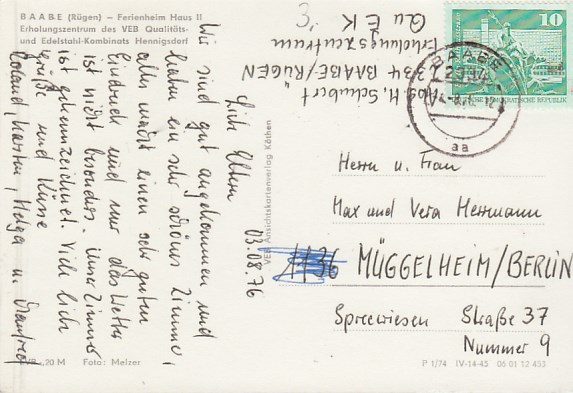 BAABE (Rügen) – Ferienheim Haus II
Erholungszentrum des VEB Qualitäts-
und Edelstahl-Kombinats Hennigsdorf
03.08.76
Liebe Eltern
Wir sind gut angekommen und
haben ein sehr schönes Zimmer,
alles macht einen sehr guten
Eindruck und nur das Wetter
ist nicht besonders. Unser Zimmer
ist gekennzeichnet. Viele liebe
Grüße und Küsse
Roland, Karsten, Helga u. Manfred
VEB Ansichtskartenverlag Köthen
,20 M Foto: Melzer
Abs. H. Schubert
2334 BAABE/RÜGEN
Erholungszentrum
Qu E K
10
DEMOKRATISCHE REPUBLIK
BAABE
2334
aa
Herrn u. Frau
Max und Vera Herrmann
1136 MÜGGELHEIM/BERLIN
Spreewiesen Straße 37
Nummer 9
P 1/74 IV-14-45 05 01 12 433